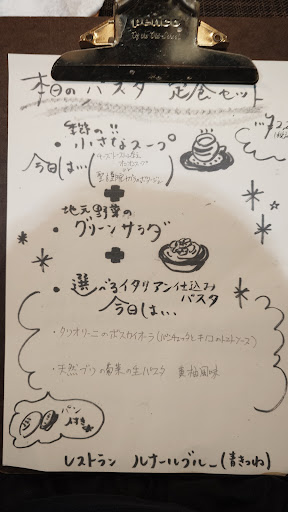 PENCO
本日のパスタ 定食セット
季節の!!
・小さなスープ
今日は…
+
地元野菜の
・グリーンサラダ
+
・選べるイタリアン仕込み
パスタ
今日は…
・タリオリーニのボスカイオーラ(パンチェッタとキノコのトマトソース)
・天然ブリの菊菜の生パスタ 黄柚風味
パン
付き
レストラン ルナールブルー(青きつね)